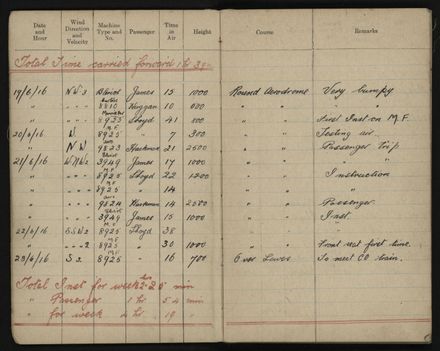 Date and Hour Wind Direction and Velocity Machine Type and No. Passenger Time in Air Height Course Remarks
Total Time carried forward 1 hr
17/6/16 NW 3 James 15 1000 Round Aerodrome Very bumpy
" " " " 8810 10 600 " " " "
" " " " 8925 Lloyd 41 800 " " First Inst on M.F.
20/6/16 W. M.F. 8925 " 7 300 " " Testing air.
" NW 9823 21 2600 " " Passenger Trip
21/6/16 3949 James 17 1000 " "
" " " " M.F. 8925 Lloyd 22 1200 " " Instruction
" " " " M.F. 8925 " 14 " "
" " " " 9824 14 2600 " " Passenger.
" " " " 3949 James 15 1000 " " Inst.
22/6/16 M.F. 8925 Lloyd 38 " "
" " " 2 M.F. 8925 " 30 1000 " " Front seat first time.
23/6/16 S 2 M.F. 8925 " 16 700 Over Lewes To meet CO train.
Total Inst for week 2 hrs 25 min
" Passenger 1 hr 54 min
" for week 4 hr 19 "